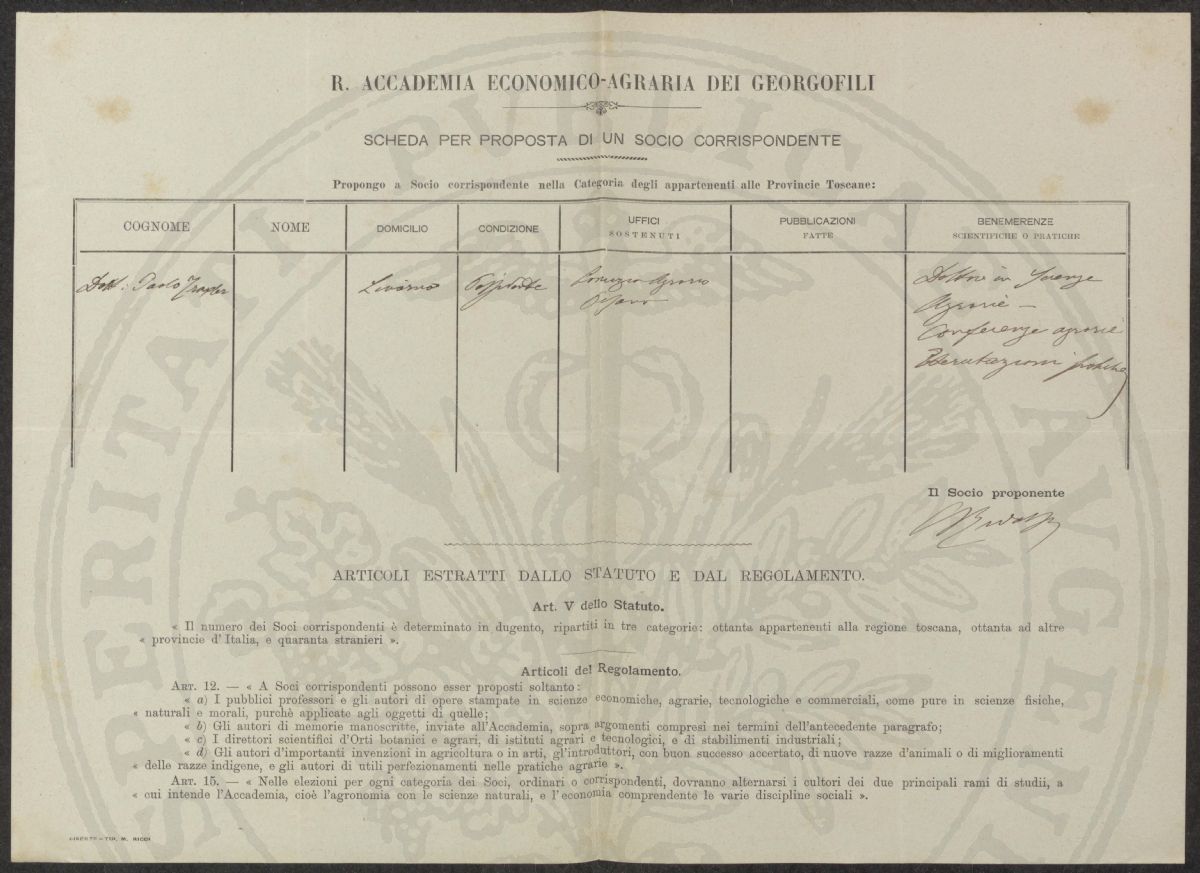 R. ACCADEMIA ECONOMICO-AGRARIA DEI GEORGOFILI
SCHEDA PER PROPOSTA DI UN SOCIO CORRISPONDENTE
Propongo a Socio corrispondente nella Categoria degli appartenenti alle Provincie Toscane:
COGNOME
NOME
DOMICILIO
CONDIZIONE
UFFICI
SOSTENUTI
PUBBLICAZIONI
FATTE
BENEMERENZE
SCIENTIFICHE O PRATICHE
Dott: Paolo
Livorno
Agrario
Dottore in Scienze
Agrarie —
Conferenze agrarie
Il Socio proponente
ARTICOLI ESTRATTI DALLO STATUTO E DAL REGOLAMENTO.
Art. V dello Statuto.
« Il numero dei Soci corrispondenti è determinato in dugento, ripartiti in tre categorie: ottanta appartenenti alla regione toscana, ottanta ad altre
« provincie d'Italia, e quaranta stranieri ».
Articoli del Regolamento.
ART. 12. — « A Soci corrispondenti possono esser proposti soltanto:
« a) I pubblici professori e gli autori di opere stampate in scienze economiche, agrarie, tecnologiche e commerciali, come pure in scienze fisiche,
« naturali e morali, purchè applicate agli oggetti di quelle;
« b) Gli autori di memorie manoscritte, inviate all'Accademia, sopra argomenti compresi nei termini dell'antecedente paragrafo;
« c) I direttori scientifici d'Orti botanici e agrari, di istituti agrari e tecnologici, e di stabilimenti industriali;
« d) Gli autori d'importanti invenzioni in agricoltura o in arti, gl'introduttori, con buon successo accertato, di nuove razze d'animali o di miglioramenti
« delle razze indigene, e gli autori di utili perfezionamenti nelle pratiche agrarie ».
ART. 15. — « Nelle elezioni per ogni categoria dei Soci, ordinari o corrispondenti, dovranno alternarsi i cultori dei due principali rami di studii, a
« cui intende l'Accademia, cioè l'agronomia con le scienze naturali, e l'economia comprendente le varie discipline sociali ».
FIRENZE — TIP. M. RICCI